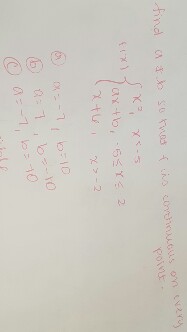 find a & b so that f is continuous on every
point.
f(x) { x², x<-5
ax+b, -5≤x≤2
x+4, x>2
ⓐ a=-7, b=10
ⓑ a=7, b=-10
ⓒ a=-7, b=-10